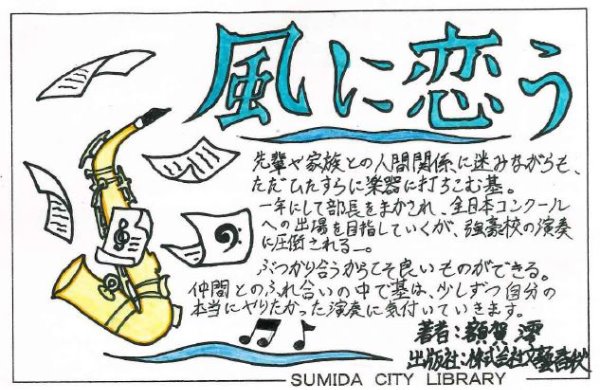 風に恋う
先輩や家族との人間関係に迷みながらも、
ただひたすらに楽器に打ちこむ基。
一年にして部長をまかされ、全日本コンクール
への出場を目指していくが、強豪校の演奏
に圧倒される―。
ぶつかり合うからこそ良いものができる。
仲間とのふれ合いの中で基は、少しずつ自分の
本当にやりたかった演奏に気付いていきます。
著者：額賀 澪
出版社：株式会社文藝春秋
SUMIDA CITY LIBRARY